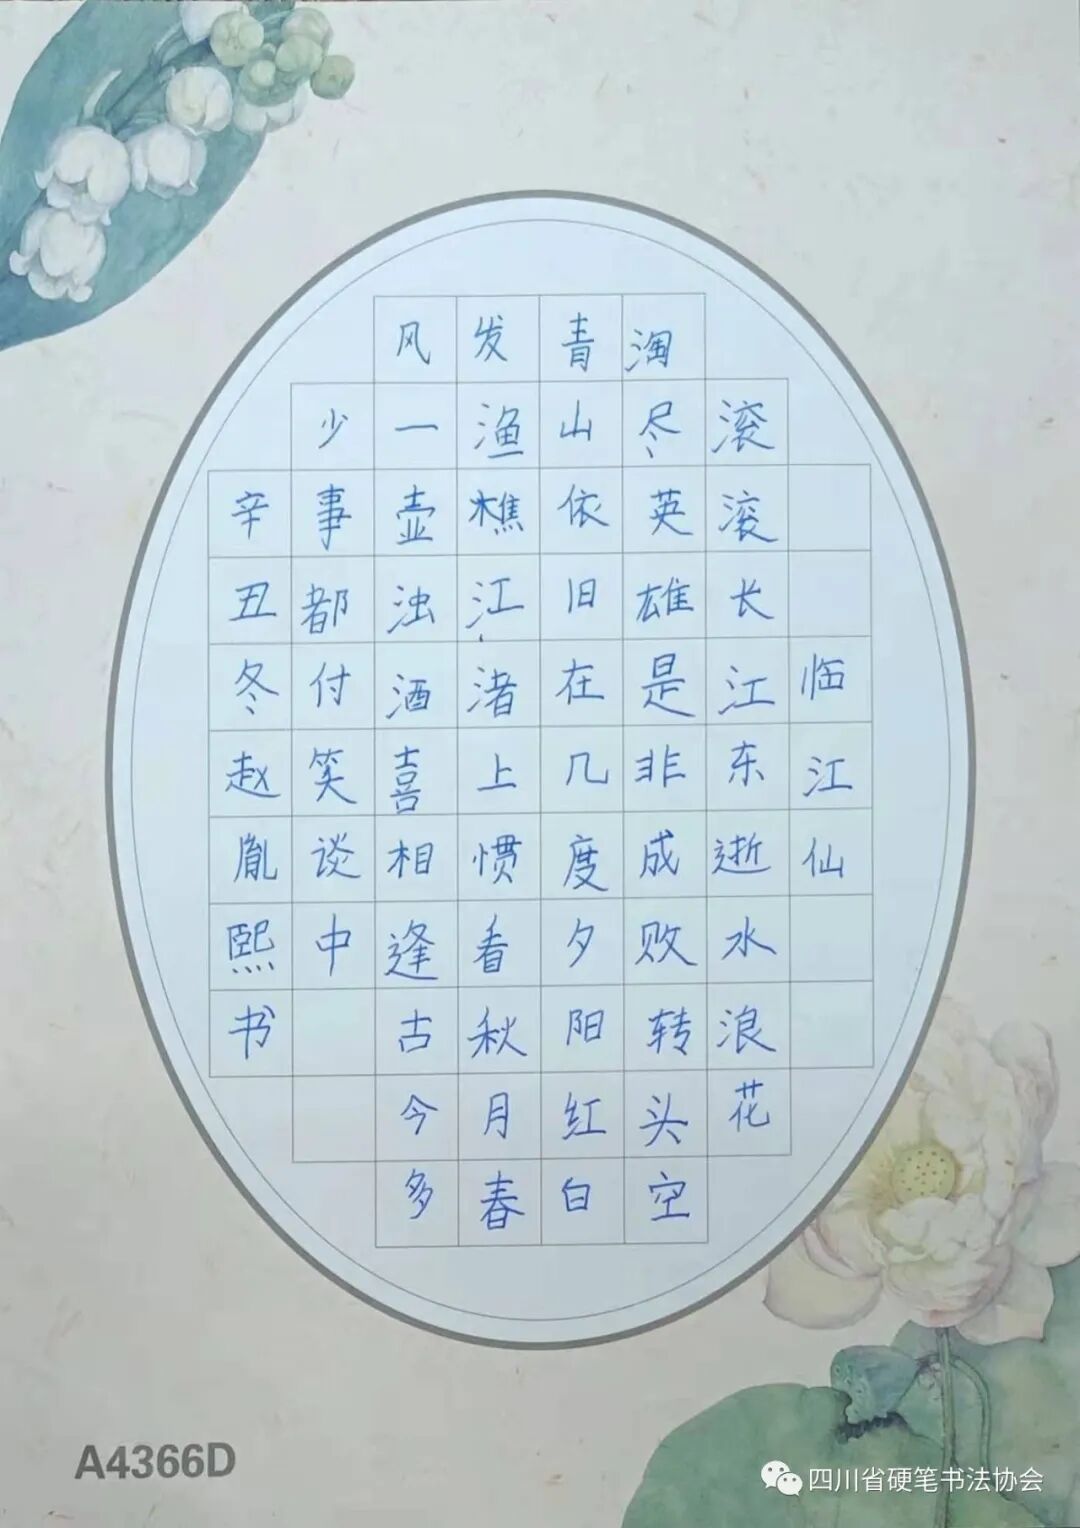 临江仙
滚滚长江东逝水浪花
淘尽英雄是非成败转头空
青山依旧在几度夕阳红白
发渔樵江渚上惯看秋月春
风一壶浊酒喜相逢古今多
少事都付笑谈中
辛丑冬赵胤熙书
A4366D
四川省硬笔书法协会